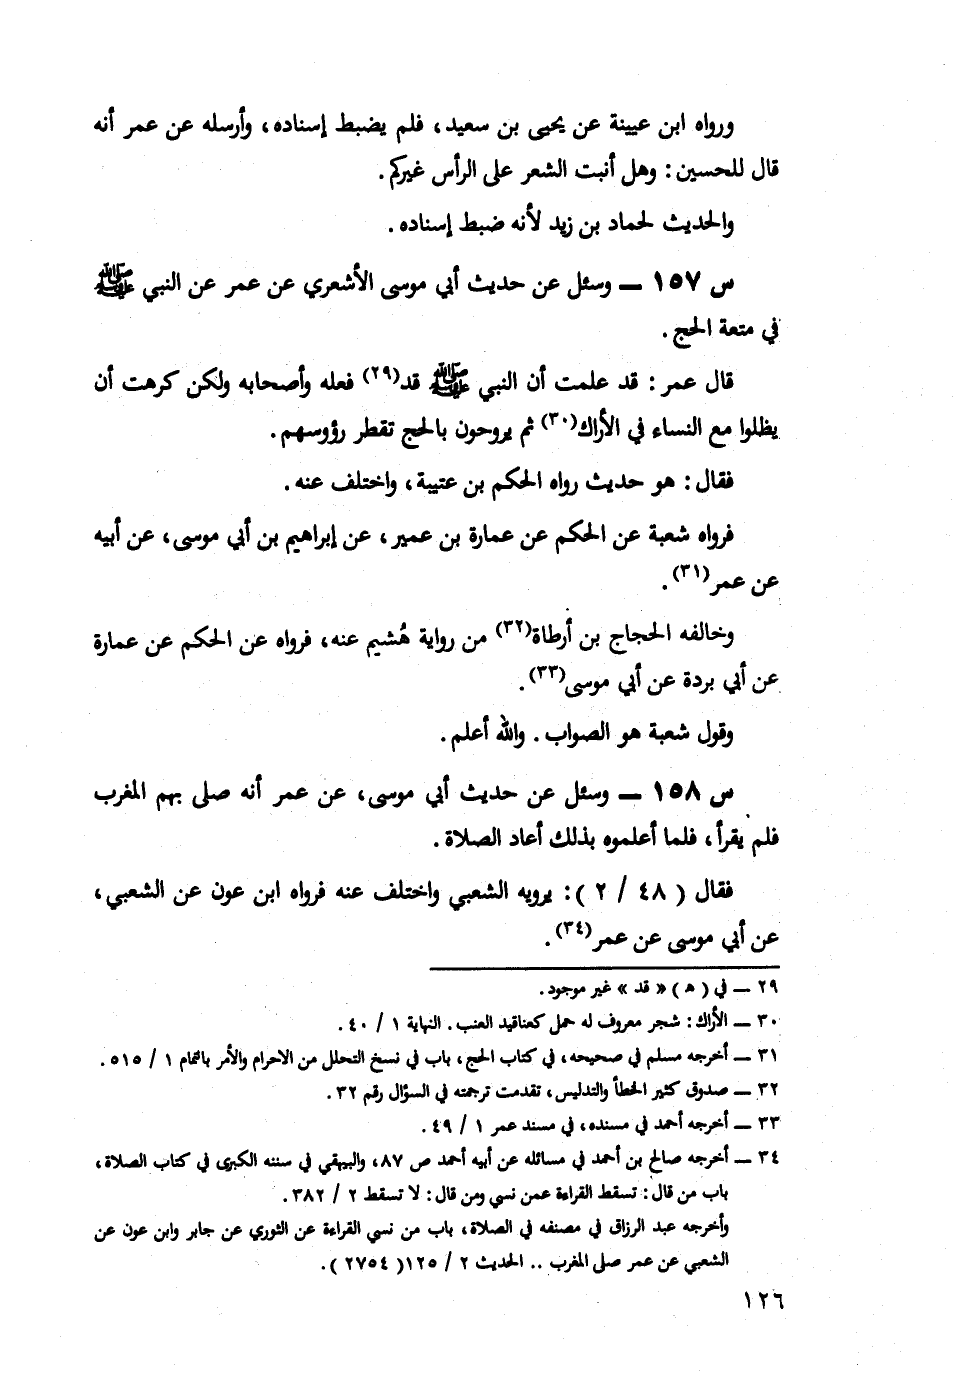 ورواه ابن عيينة عن يحيى بن سعيد، فلم يضبط إسناده، وأرسله عن عمر أنه
قال للحسين: وهل أنبت الشعر على الرأس غيركم.
والحديث لحماد بن زيد لأنه ضبط إسناده.
س ١٥٧ ــ وسئل عن حديث أبي موسى الأشعري عن عمر عن النبي ﷺ
في متعة الحج.
قال عمر: قد علمت أن النبي ﷺ قد(٢٩) فعله وأصحابه ولكن كرهت أن
يظلوا مع النساء في الأراك(٣٠) ثم يروحون بالحج تقطر رؤوسهم.
فقال: هو حديث رواه الحكم بن عتيبة، واختلف عنه.
فرواه شعبة عن الحكم عن عمارة بن عمير، عن إبراهيم بن أبي موسى، عن أبيه
عن عمر(٣١).
وخالفه الحجاج بن أرطاة(٣٢) من رواية هُشيم عنه، فرواه عن الحكم عن عمارة
عن أبي بردة عن أبي موسى(٣٣).
وقول شعبة هو الصواب. والله أعلم.
س ١٥٨ ــ وسئل عن حديث أبي موسى، عن عمر أنه صلى بهم المغرب
فلم يقرأ، فلما أعلموه بذلك أعاد الصلاة.
فقال ( ٤٨ / ٢ ): يرويه الشعبي واختلف عنه فرواه ابن عون عن الشعبي،
عن أبي موسى عن عمر(٣٤).
٢٩ ــ في ( هـ ) « قد » غير موجود.
٣٠ ــ الأراك: شجر معروف له حمل كعناقيد العنب. النهاية ١ / ٤٠.
٣١ ــ أخرجه مسلم في صحيحه، في كتاب الحج، باب في نسخ التحلل من الاحرام والأمر بالتمام ١ / ٥١٥.
٣٢ ــ صدوق كثير الخطأ والتدليس، تقدمت ترجمته في السؤال رقم ٣٢.
٣٣ ــ أخرجه أحمد في مسنده، في مسند عمر ١ / ٤٩.
٣٤ ــ أخرجه صالح بن أحمد في مسائله عن أبيه أحمد ص ٨٧، والبيهقي في سننه الكبرى في كتاب الصلاة،
باب من قال: تسقط القراءة عمن نسي ومن قال: لا تسقط ٢ / ٣٨٢.
وأخرجه عبد الرزاق في مصنفه في الصلاة، باب من نسي القراءة عن الثوري عن جابر وابن عون عن
الشعبي عن عمر صلى المغرب .. الحديث ٢ / ١٢٥( ٢٧٥٤ ).
١٢٦